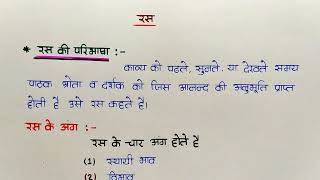 रस
* रस की परिभाषा :-
काव्य को पढते, सुनते, या देखते समय
पाठक श्रोता व दर्शक को जिस आनन्द की अनुभूति प्राप्त
होती है उसे रस कहते हैं।
रस के अंग :-
रस के चार अंग होते हैं
(1) स्थायी भाव
(2) विभाव